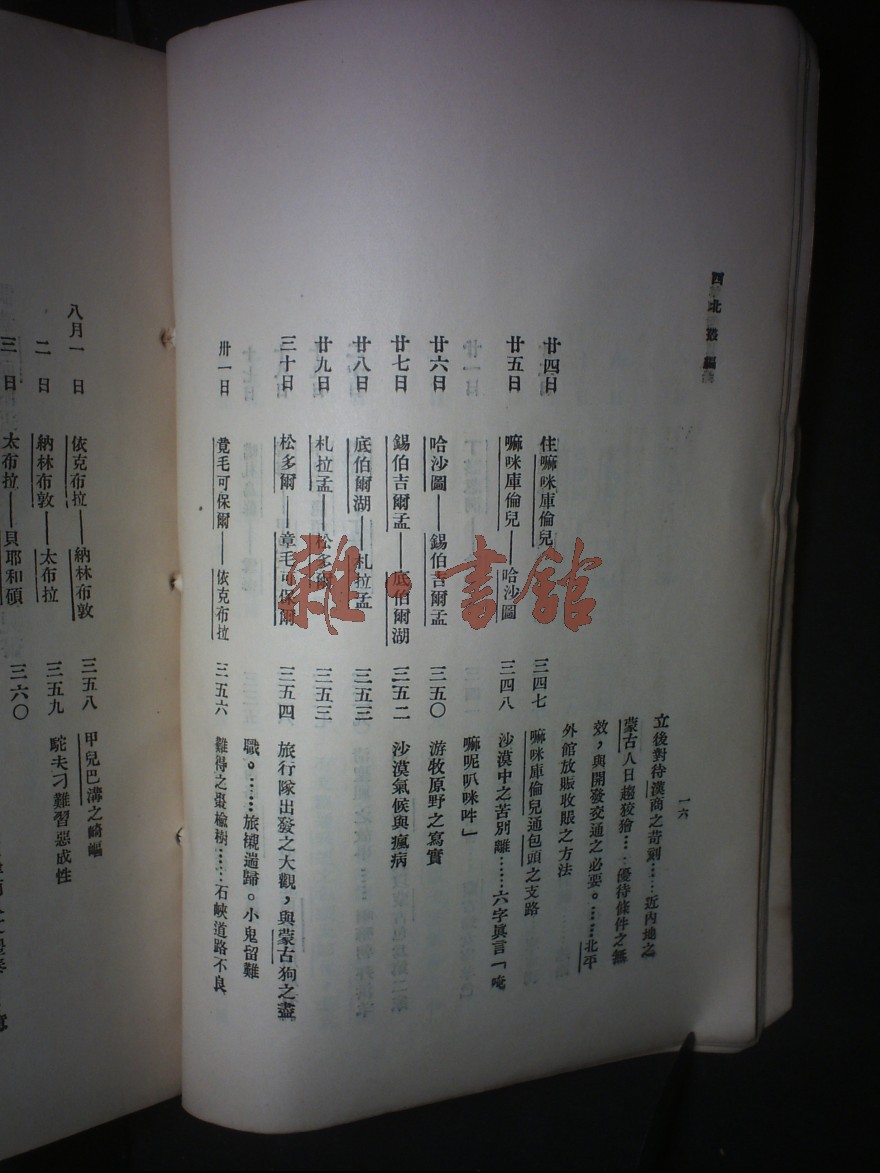 西北叢編
一六
立後對待漢商之苛刻……近內地之
蒙古人日趨狡獪……優待條件之無
效，與開發交通之必要。……北平
外館放賬收賬之方法
廿四日　住嘛咪庫倫兒　三四七　嘛咪庫倫兒通包頭之支路
廿五日　嘛咪庫倫兒——哈沙圖　三四八　沙漠中之苦別離……六字眞言「唵
嘛呢叭咪吽」
廿六日　哈沙圖——錫伯吉爾孟　三五〇　游牧原野之寫實
廿七日　錫伯吉爾孟——底伯爾湖　三五二　沙漠氣候與瘋病
廿八日　底伯爾湖——札拉孟　三五三
廿九日　札拉孟——松多爾　三五三
三十日　松多爾——章毛可保爾　三五四　旅行隊出發之大觀，與蒙古狗之盡
職。……旅櫬遄歸。小鬼留難
卅一日　毛可保爾——依克布拉　三五六　難得之棗榆樹……石峽道路不良
八月一日　依克布拉——納林布敦　三五八　甲兒巴溝之崎嶇
二日　納林布敦——太布拉　三五九　駝夫刁難習惡成性
三日　太布拉——貝耶和碩　三六〇
雜·書舘